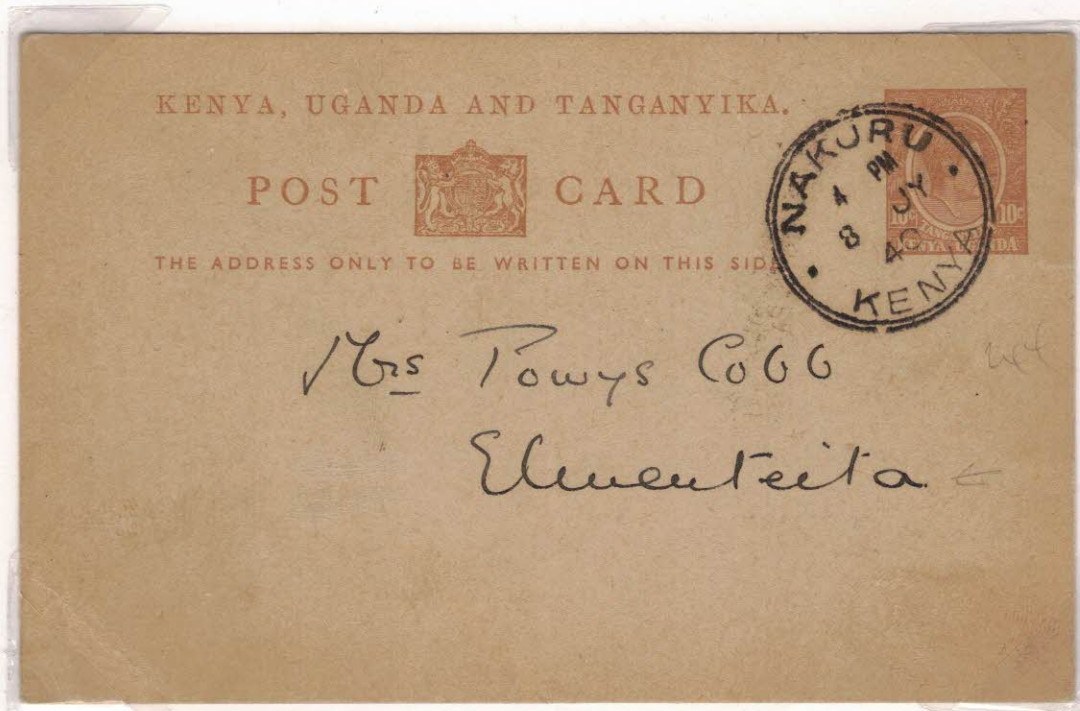 KENYA, UGANDA AND TANGANYIKA.
POST CARD
THE ADDRESS ONLY TO BE WRITTEN ON THIS SIDE
NAKURU
4 PM
8 JY
40
KENYA
10c 10c
KENYA UGANDA
Mrs Powys Cobb
Elmenteita